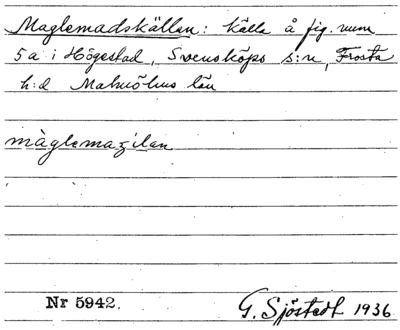 Maglemadskällan: Källa å fig. num
5a i Högestad, Svensköps s:n, Frosta
h:d Malmöhus län
màglemaʒilan
Nr 5942. G. Sjöstedt 1936